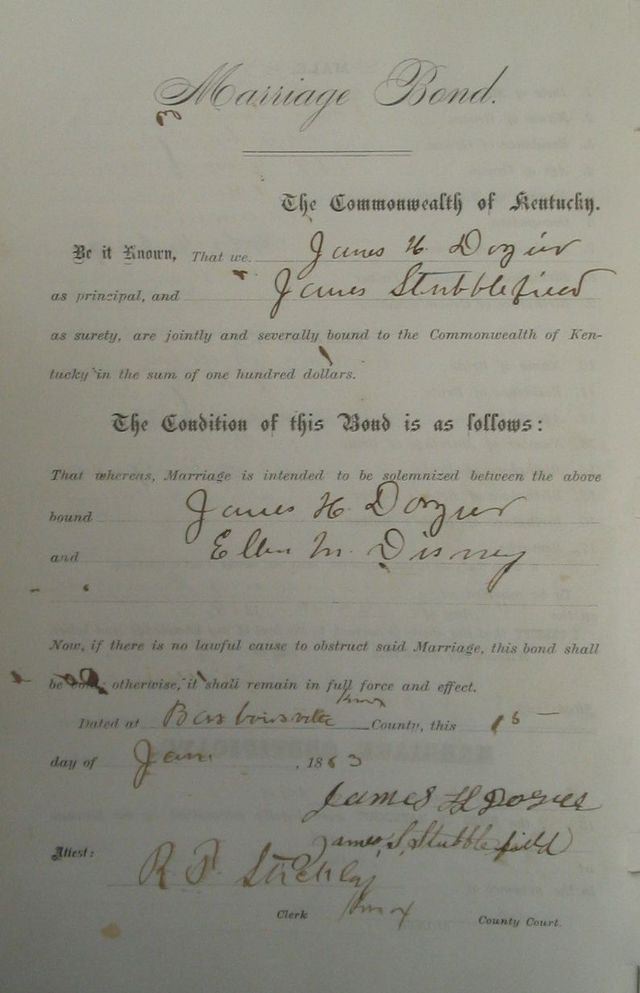 Marriage Bond.
The Commonwealth of Kentucky.
Be it Known, That we James H Dozier
as principal, and James Stubblefield
as surety, are jointly and severally bound to the Commonwealth of Ken-
tucky in the sum of one hundred dollars.
The Condition of this Bond is as follows:
That whereas, Marriage is intended to be solemnized between the above
bound James H Dozier
and Ellen M. Disney
Now, if there is no lawful cause to obstruct said Marriage, this bond shall
be void; otherwise, it shall remain in full force and effect.
Knox
Dated at Barbourville County, this 15
day of Jan , 18 3
James H Dozier
James, S, Stubblefield
Attest: R F
Clerk Knox County Court.